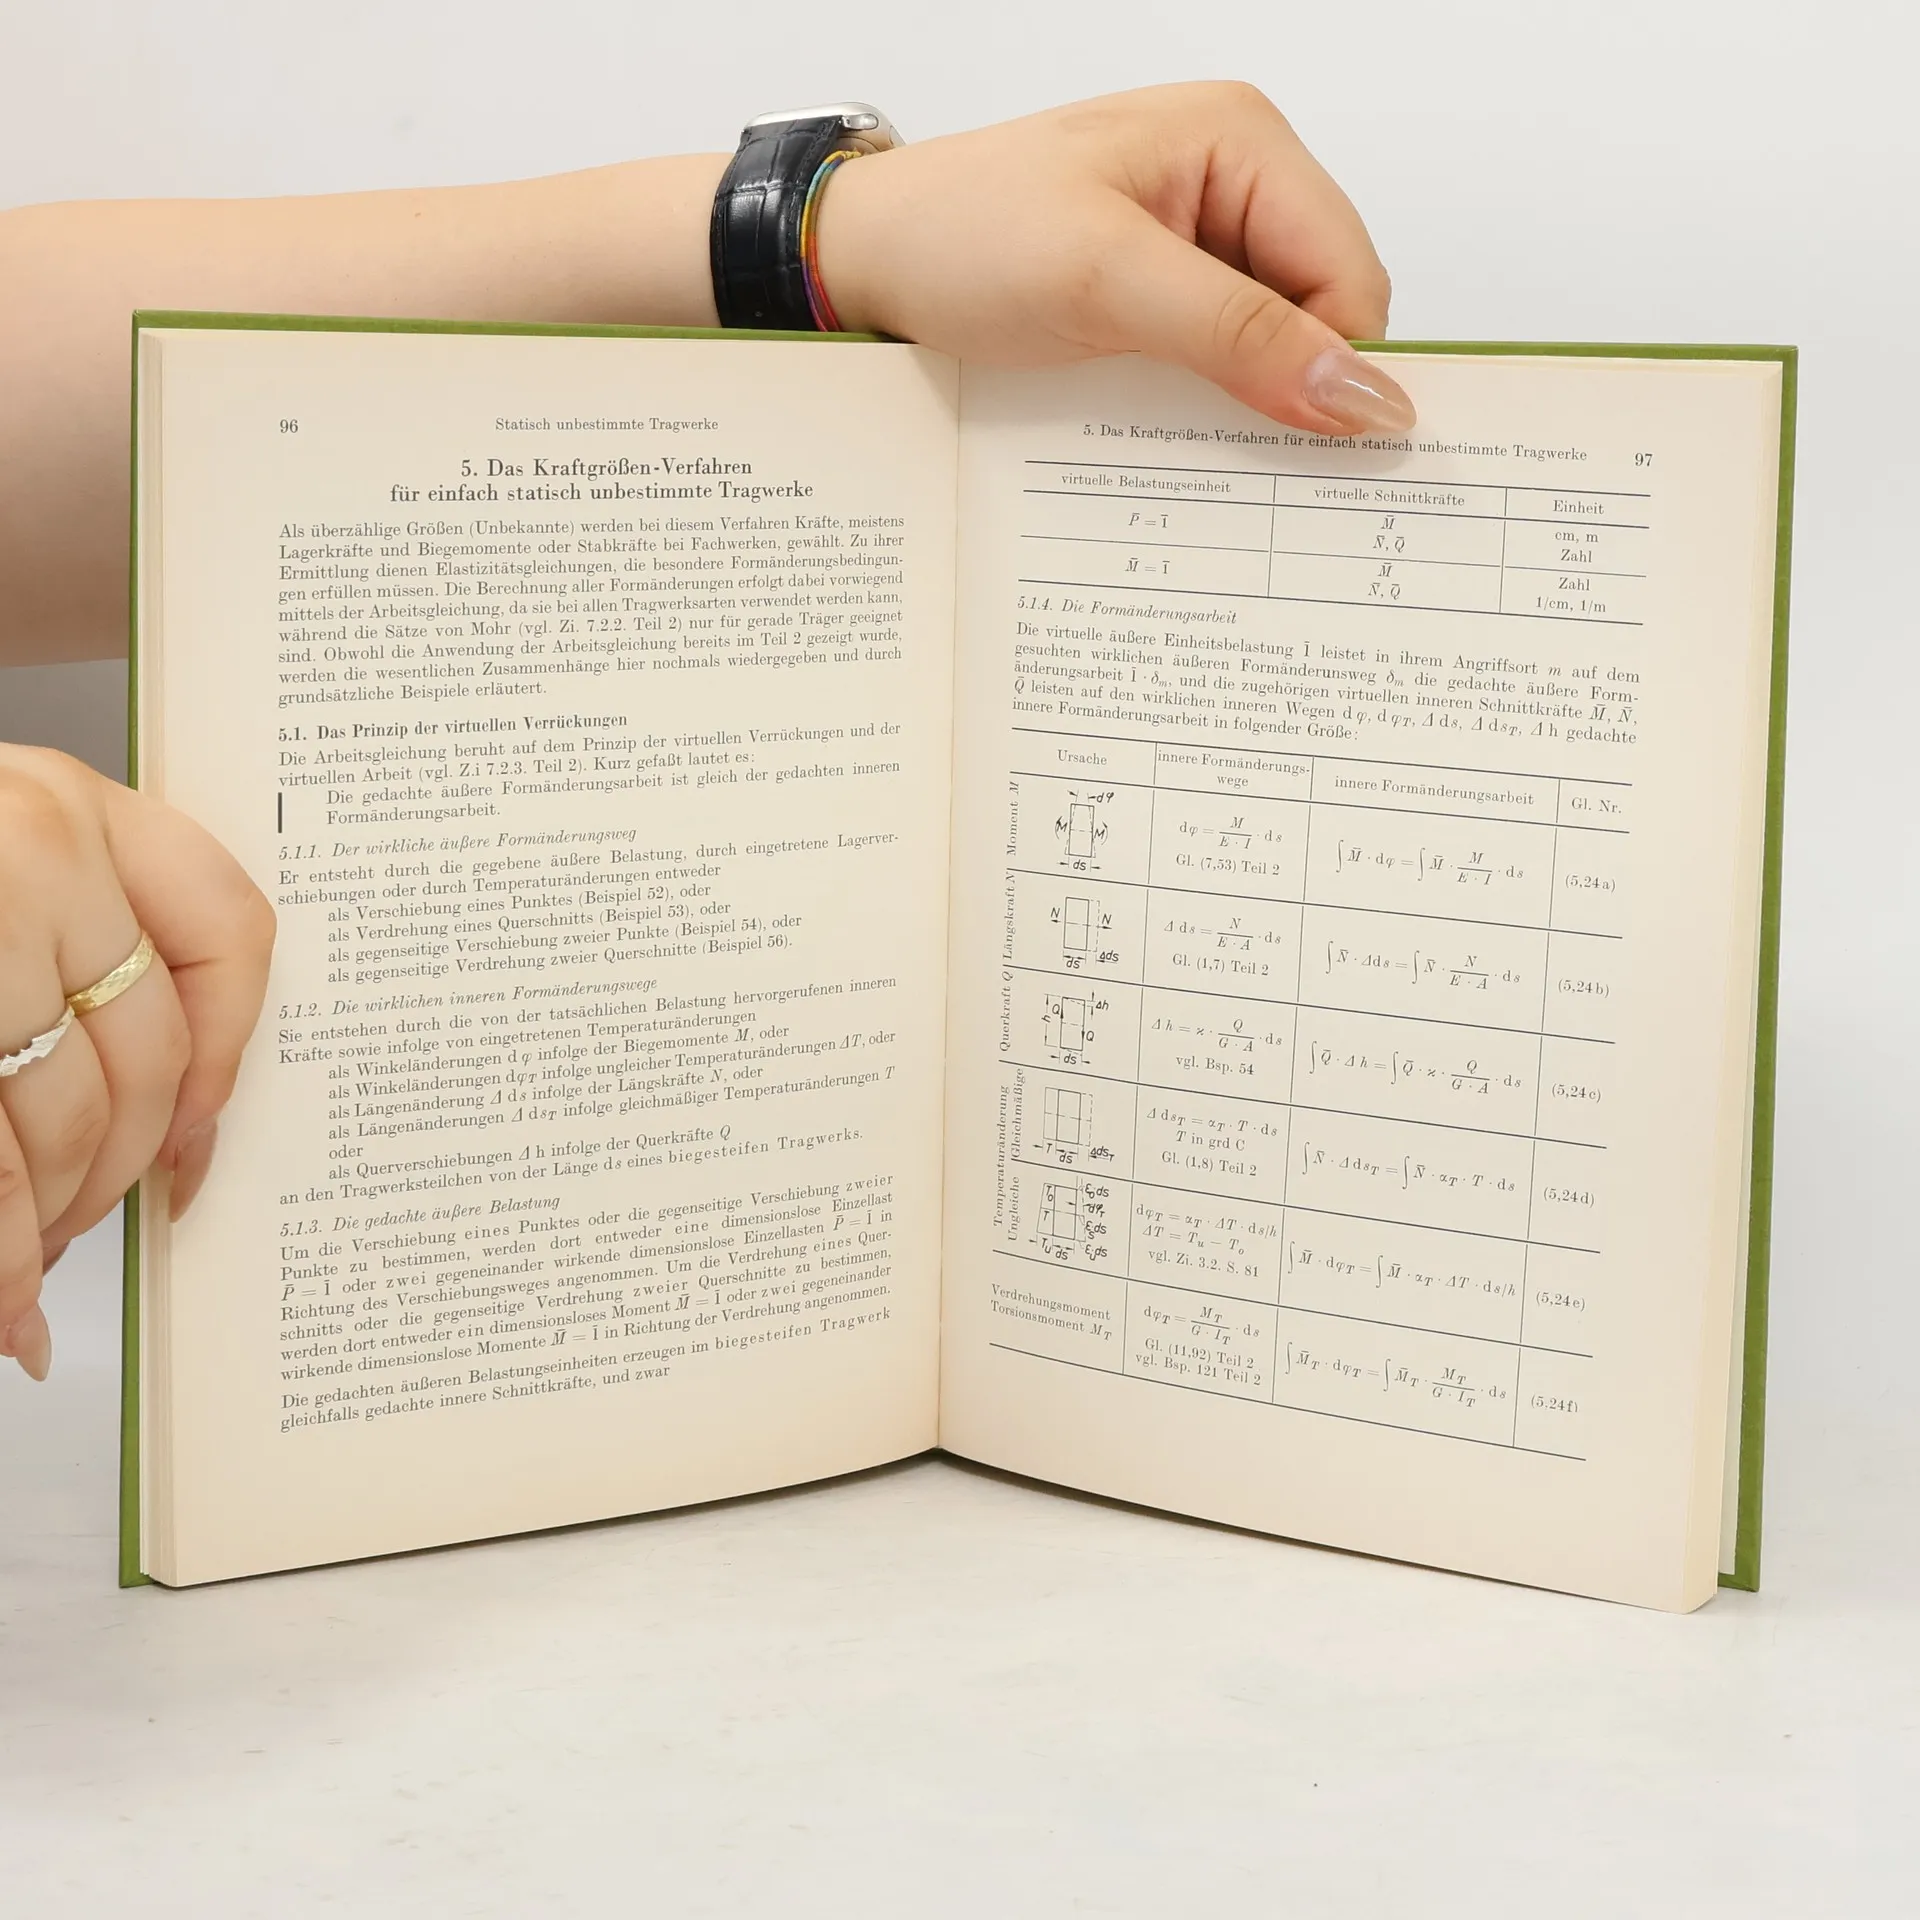 96
Statisch unbestimmte Tragwerke
5. Das Kraftgrößen-Verfahren
für einfach statisch unbestimmte Tragwerke
Als überzählige Größen (Unbekannte) werden bei diesem Verfahren Kräfte, meistens
Lagerkräfte und Biegemomente oder Stabkräfte bei Fachwerken, gewählt. Zu ihrer
Ermittlung dienen Elastizitätsgleichungen, die besondere Formänderungsbedingun-
gen erfüllen müssen. Die Berechnung aller Formänderungen erfolgt dabei vorwiegend
mittels der Arbeitsgleichung, da sie bei allen Tragwerksarten verwendet werden kann,
während die Sätze von Mohr (vgl. Zi. 7.2.2. Teil 2) nur für gerade Träger geeignet
sind. Obwohl die Anwendung der Arbeitsgleichung bereits im Teil 2 gezeigt wurde,
werden die wesentlichen Zusammenhänge hier nochmals wiedergegeben und durch
grundsätzliche Beispiele erläutert.
5.1. Das Prinzip der virtuellen Verrückungen
Die Arbeitsgleichung beruht auf dem Prinzip der virtuellen Verrückungen und der
virtuellen Arbeit (vgl. Z.i 7.2.3. Teil 2). Kurz gefaßt lautet es:
Die gedachte äußere Formänderungsarbeit ist gleich der gedachten inneren
Formänderungsarbeit.
5.1.1. Der wirkliche äußere Formänderungsweg
Er entsteht durch die gegebene äußere Belastung, durch eingetretene Lagerver-
schiebungen oder durch Temperaturänderungen entweder
als Verschiebung eines Punktes (Beispiel 52), oder
als Verdrehung eines Querschnitts (Beispiel 53), oder
als gegenseitige Verschiebung zweier Punkte (Beispiel 54), oder
als gegenseitige Verdrehung zweier Querschnitte (Beispiel 56).
5.1.2. Die wirklichen inneren Formänderungswege
Sie entstehen durch die von der tatsächlichen Belastung hervorgerufenen inneren
Kräfte sowie infolge von eingetretenen Temperaturänderungen
als Winkeländerungen d φ infolge der Biegemomente M, oder
als Winkeländerungen dφ_T infolge ungleicher Temperaturänderungen ΔT, oder
als Längenänderung Δ ds infolge der Längskräfte N, oder
als Längenänderungen Δ ds_T infolge gleichmäßiger Temperaturänderungen T
oder
als Querverschiebungen Δ h infolge der Querkräfte Q
an den Tragwerksteilchen von der Länge ds eines biegesteifen Tragwerks.
5.1.3. Die gedachte äußere Belastung
Um die Verschiebung eines Punktes oder die gegenseitige Verschiebung zweier
Punkte zu bestimmen, werden dort entweder eine dimensionslose Einzellast
P̄ = 1̄ oder zwei gegeneinander wirkende dimensionslose Einzellasten P̄ = 1̄ in
Richtung des Verschiebungsweges angenommen. Um die Verdrehung eines Quer-
schnitts oder die gegenseitige Verdrehung zweier Querschnitte zu bestimmen,
werden dort entweder ein dimensionsloses Moment M̄ = 1̄ oder zwei gegeneinander
wirkende dimensionslose Momente M̄ = 1̄ in Richtung der Verdrehung angenommen.
Die gedachten äußeren Belastungseinheiten erzeugen im biegesteifen Tragwerk
gleichfalls gedachte innere Schnittkräfte, und zwar
5. Das Kraftgrößen-Verfahren für einfach statisch unbestimmte Tragwerke 97
virtuelle Belastungseinheit virtuelle Schnittkräfte Einheit
P̄ = 1̄ M̄ cm, m
N̄, Q̄ Zahl
M̄ = 1̄ M̄ Zahl
N̄, Q̄ 1/cm, 1/m
5.1.4. Die Formänderungsarbeit
Die virtuelle äußere Einheitsbelastung 1̄ leistet in ihrem Angriffsort m auf dem
gesuchten wirklichen äußeren Formänderunsweg δ_m die gedachte äußere Form-
änderungsarbeit 1̄ · δ_m, und die zugehörigen virtuellen inneren Schnittkräfte M̄, N̄,
Q̄ leisten auf den wirklichen inneren Wegen d φ, d φ_T, Δ ds, Δ ds_T, Δ h gedachte
innere Formänderungsarbeit in folgender Größe:
Ursache innere Formänderungs- innere Formänderungsarbeit Gl. Nr.
wege
Moment M
dφ
M M
ds
dφ = M / (E · I) · ds
Gl. (7,53) Teil 2
∫ M̄ · dφ = ∫ M̄ · M / (E · I) · ds
(5,24a)
Längskraft N
N N
ds Δds
Δ ds = N / (E · A) · ds
Gl. (1,7) Teil 2
∫ N̄ · Δds = ∫ N̄ · N / (E · A) · ds
(5,24b)
Querkraft Q
Δh
h Q Q
ds
Δ h = ϰ · Q / (G · A) · ds
vgl. Bsp. 54
∫ Q̄ · Δ h = ∫ Q̄ · ϰ · Q / (G · A) · ds
(5,24c)
Temperaturänderung
Gleichmäßige
T ds Δds_T
Δ ds_T = α_T · T · ds
T in grd C
Gl. (1,8) Teil 2
∫ N̄ · Δ ds_T = ∫ N̄ · α_T · T · ds
(5,24d)
Ungleiche
T_o ε_o ds
dφ_T
T ε_s ds
T_u ds ε_u ds
dφ_T = α_T · ΔT · ds/h
ΔT = T_u − T_o
vgl. Zi. 3.2. S. 81
∫ M̄ · dφ_T = ∫ M̄ · α_T · ΔT · ds/h
(5,24e)
Verdrehungsmoment
Torsionsmoment M_T
dφ_T = M_T / (G · I_T) · ds
Gl. (11,92) Teil 2
vgl. Bsp. 121 Teil 2
∫ M̄_T · dφ_T = ∫ M̄_T · M_T / (G · I_T) · ds
(5,24f)